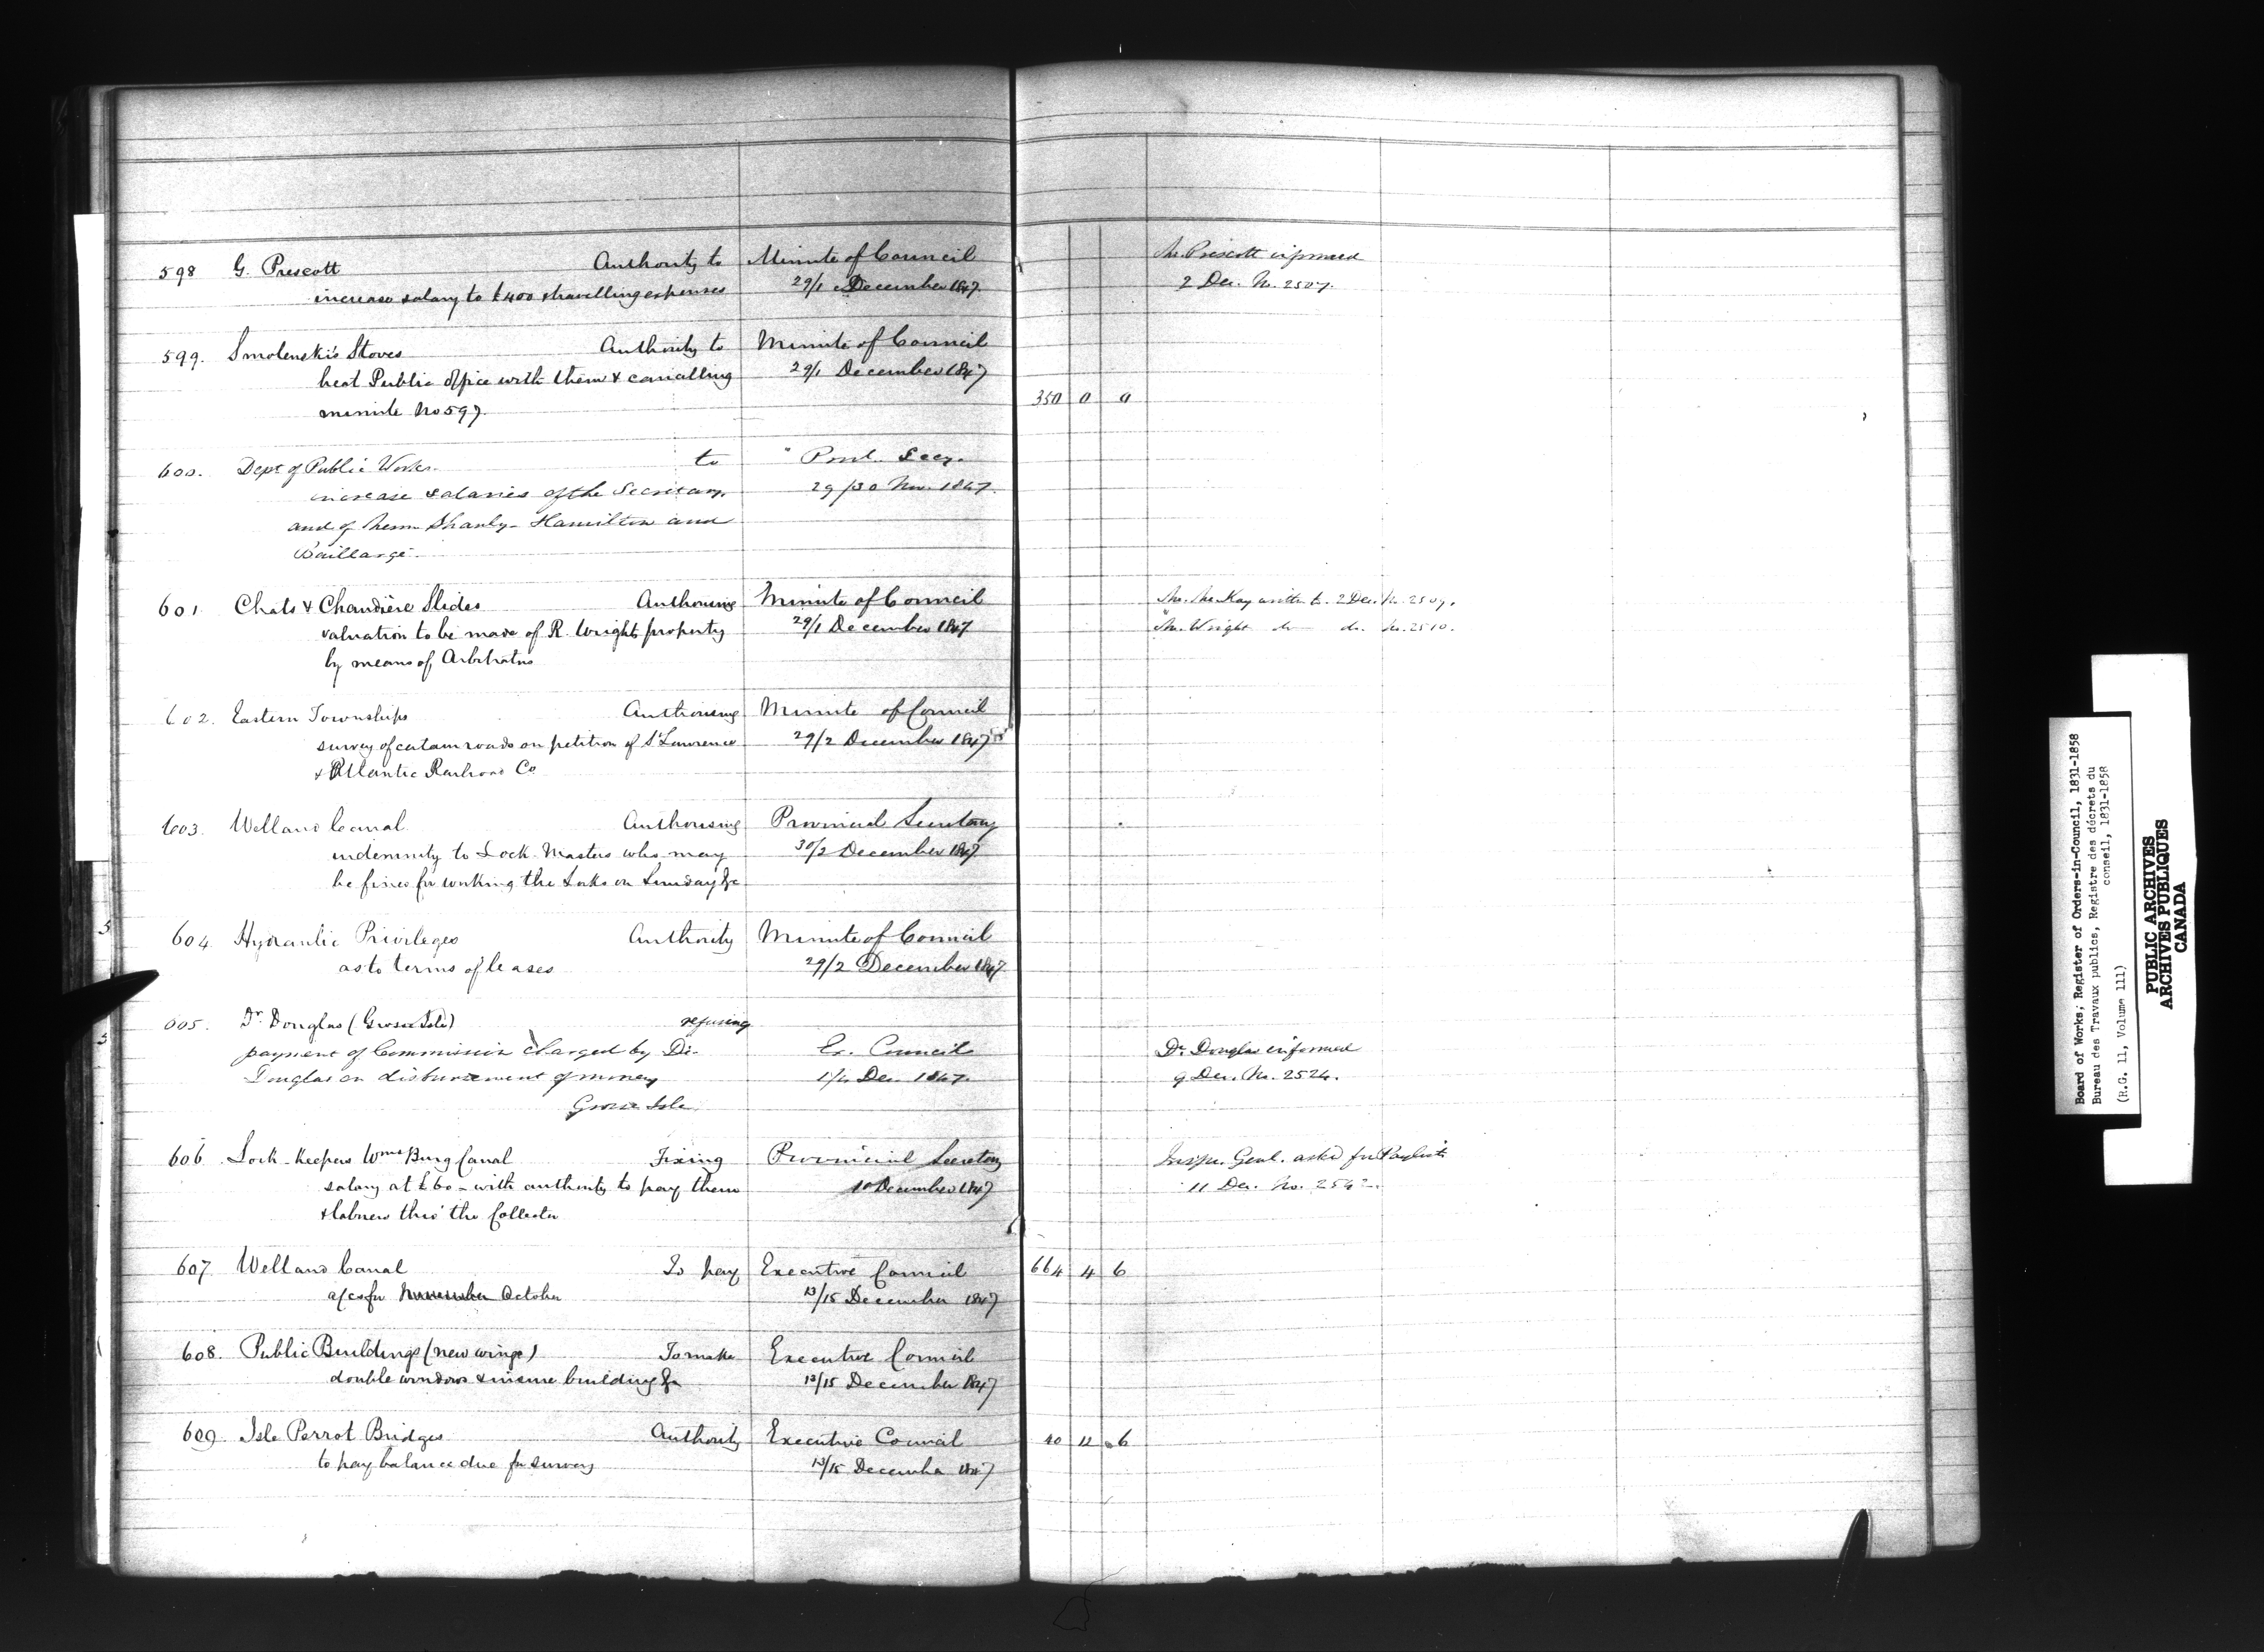 598 G. Prescott Authority to Minute of Council Mr. Prescott informed
increase salary to £400 & travelling expenses 29/1 December 1847. 2 Dec. No. 2507.
599. Smolenski's Stoves Authority to Minute of Council
heat Public Office with them & cancelling 29/1 December 1847
minute No 597. 350 0 0
600. Dept of Public Works. to " Provl. Secy.
increase salaries of the Secretary. 29/30 Nov. 1847.
and of Messrs Shanly - Hamilton and
Baillargé.
601 Chats & Chaudière Slides Authorising Minute of Council Mr. McKay written to. 2 Dec. No. 2509.
valuation to be made of R. Wright's property 29/1 December 1847 Mr. Wright do do. No. 2510.
by means of Arbitrators
602. Eastern Townships Authorising Minute of Council
survey of certain roads on petition of St Lawrence 29/2 December 1847
& Atlantic Railroad Co
603. Welland Canal Authorising Provincial Secretary
indemnity to Lock-Masters who may 30/2 December 1847
be fined for working the Locks on Sunday &c
604. Hydraulic Privileges Authority Minute of Council
as to terms of leases 29/2 December 1847
605. Dr. Douglas (Grosse Isle) refusing
payment of Commission charged by Dr. Ex. Council Dr. Douglas informed
Douglas on disbursement of money Dec. 1847. 9 Dec. No. 2524.
Grosse Isle
606 Lock-Keepers Wms Burg Canal Fixing Provincial Secretary Inspr. Genl. asked for Paylists
salary at £60 - with authority to pay them 10 December 1847 11 Dec. No. 2542.
& labrers thro' the Collector
607. Welland Canal To pay Executive Council 664 4 6
a/cs for November October 13/15 December 1847
608. Public Buildings (new wings) To make Executive Council
double windows & insure building &c 13/15 December 1847
609. Isle Perrot Bridges Authority Executive Council 40 12 6
to pay balance due for survey 13/15 December 1847
Board of Works; Register of Orders-in-Council, 1831-1858
Bureau des Travaux publics, Registre des décrets du
conseil, 1831-1858
(R.G. 11, Volume 111)
PUBLIC ARCHIVES
ARCHIVES PUBLIQUES
CANADA